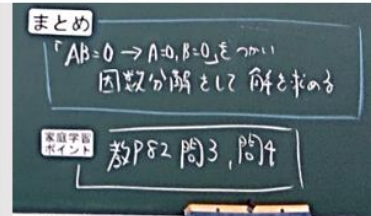 まとめ
「AB=0→A=0,B=0」をつかい
因数分解をして解を求める
家庭学習
ポイント
教P82 問3, 問4